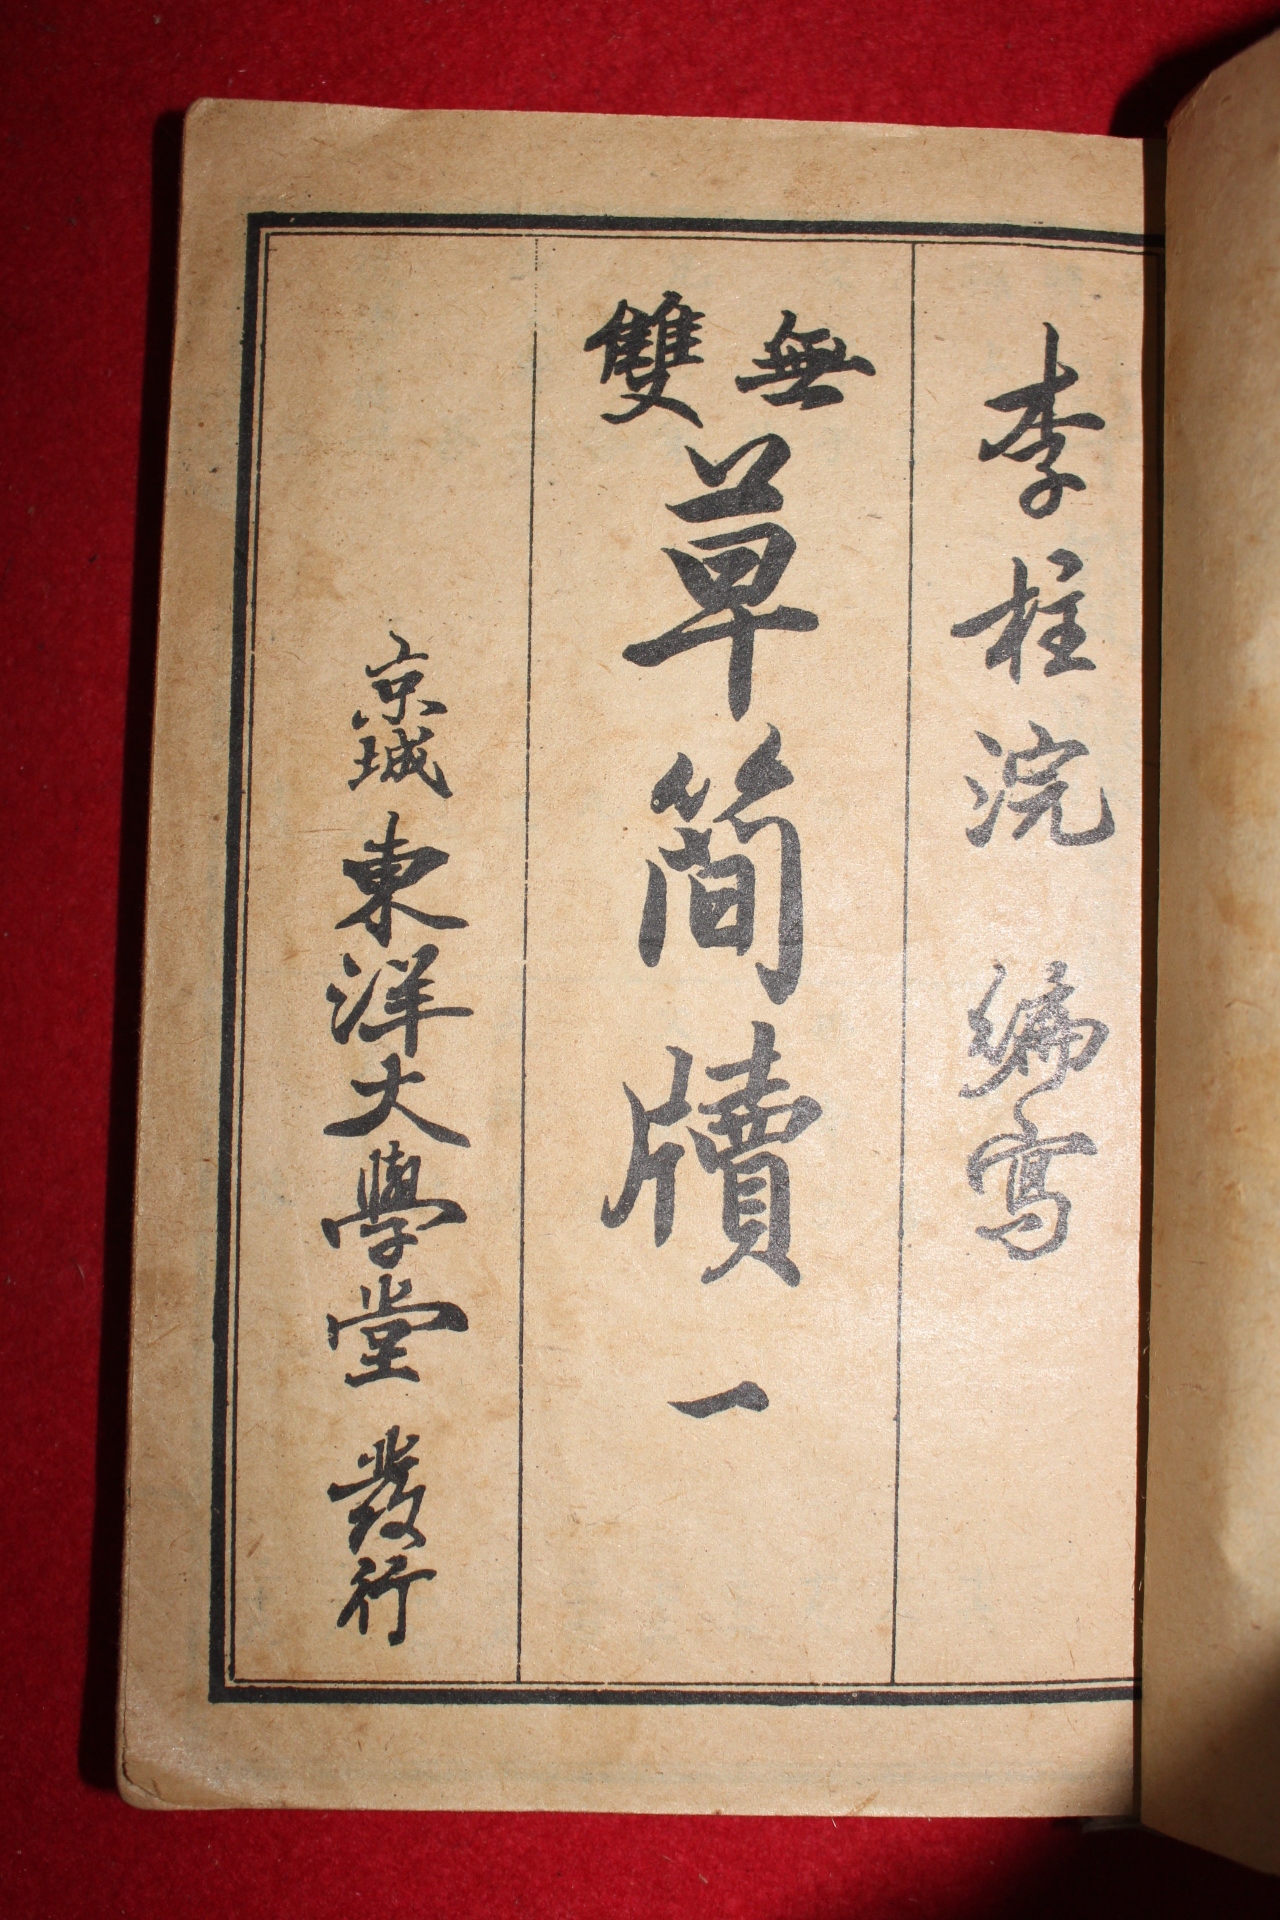 李柱浣 編寫
無雙草簡牘 一
京城 東洋大學堂 發行